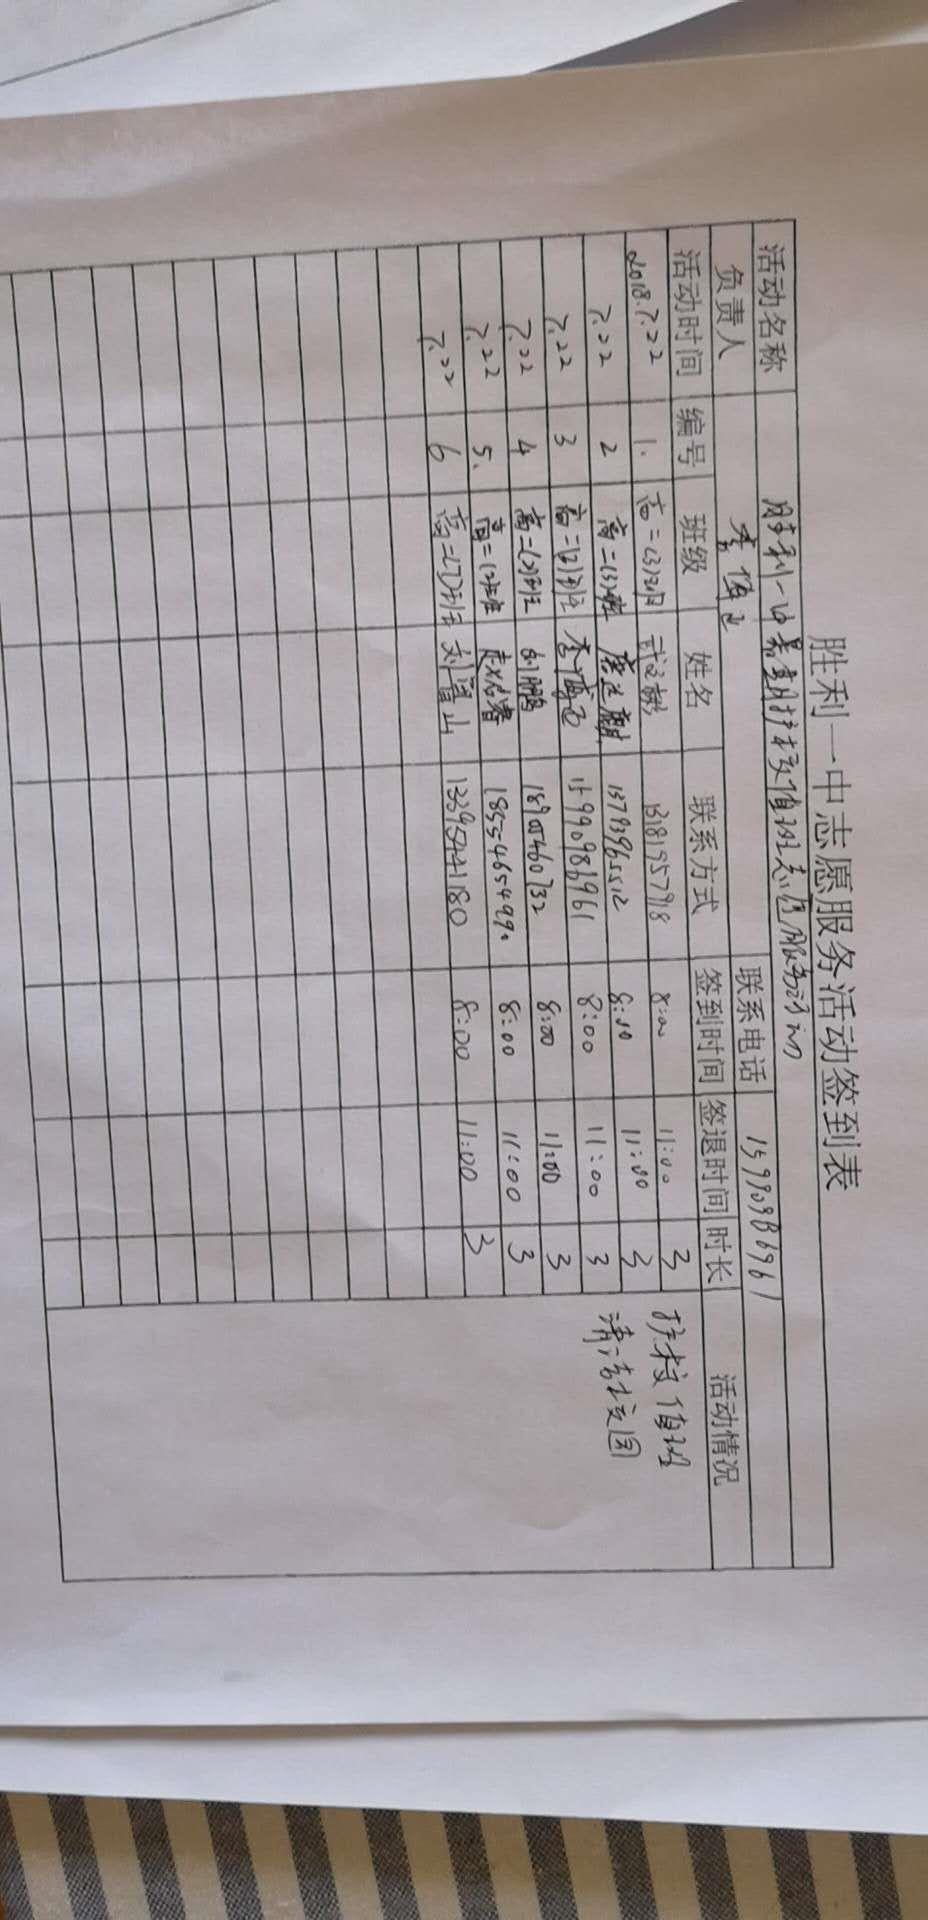 胜利一中志愿服务活动签到表
活动名称 胜利一中暑期护校值班志愿服务活动
负责人 李 联系电话 15990986961
活动时间 编号 班级 姓名 联系方式 签到时间 签退时间 时长 活动情况
2018.7.22 1. 高二(3)班 武文彬 8:00 11:00 3 护校值班
7.22 2 高二(3)班 13793965512 8:00 11:00 3 清洁校园
7.22 3 高二(2)班 李 15990986961 8:00 11:00 3
7.22 4 高二(2)班 刘鹏 18905460732 8:00 11:00 3
7.22 5. 高二 赵 18554654990 8:00 11:00 3
7.22 6 高二(7)班 刘 山 13395441180 8:00 11:00 3